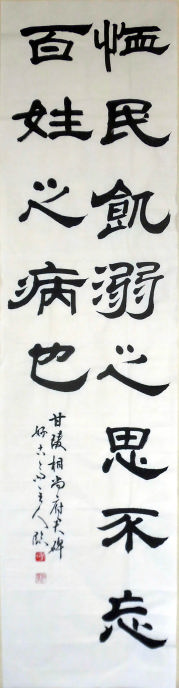 恤民飢溺之思不忘
百姓之病也
甘陵相尚府君碑
好古之